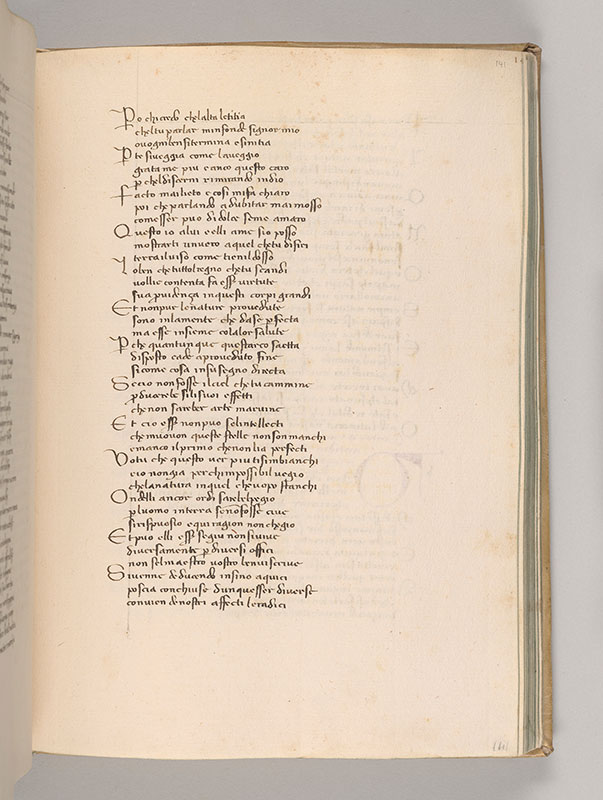 141
Po chi credo chelalta letitia
cheltu parlar minfonde signor mio
ovogniben sitermina e sinitia
P te siveggia come laveggio
grata me piu e anco questo caro
p cheldiscerni rimirando indio
Facto mailieto e cosi mifa chiaro
poi che parlando adubitar mai mosso
comesser puo di dolce seme amaro
Questo io alui e elli ame sio posso
mostrarti unvero aquel chetu disici
terrailviso come tienildosso
Loben chetuttolregno chetu scandi
volve contenta fa esse virtute
sua pvidenza inquesti corpi grandi
Et nonpur lenature provedute
sono inlamente che dase pfecta
ma esse insieme colalor salute
P che quantunque questarco saetta
disposto cade aproveduto fine
sicome cosa insuo segno directa
Secio nonfosse ilciel chetu cammine
pducerebe silisuoi effetti
chenon sareber arte maruine
Et cio esse nonpuo selintellecti
che muovon queste stelle nonson manchi
emanco ilprimo chenonlia perfecti
Votu che questo ver piu tisimbianchi
eio nongia perchimpossibil veggio
chelanatura inquel cheuopo stanchi
Ondelli ancor ordi sarebelpegio
pluomo interra senofosse cive
sirispuosio equi ragion nonchegio
Et puo elli esse segiu nonsiuiue
diversamente p diversi offici
non selmaestro vostro benviscrive
Siuenne deducendo insino aquici
poscia conchiuse dunquesser diverse
convien denostri affecti leradici
141